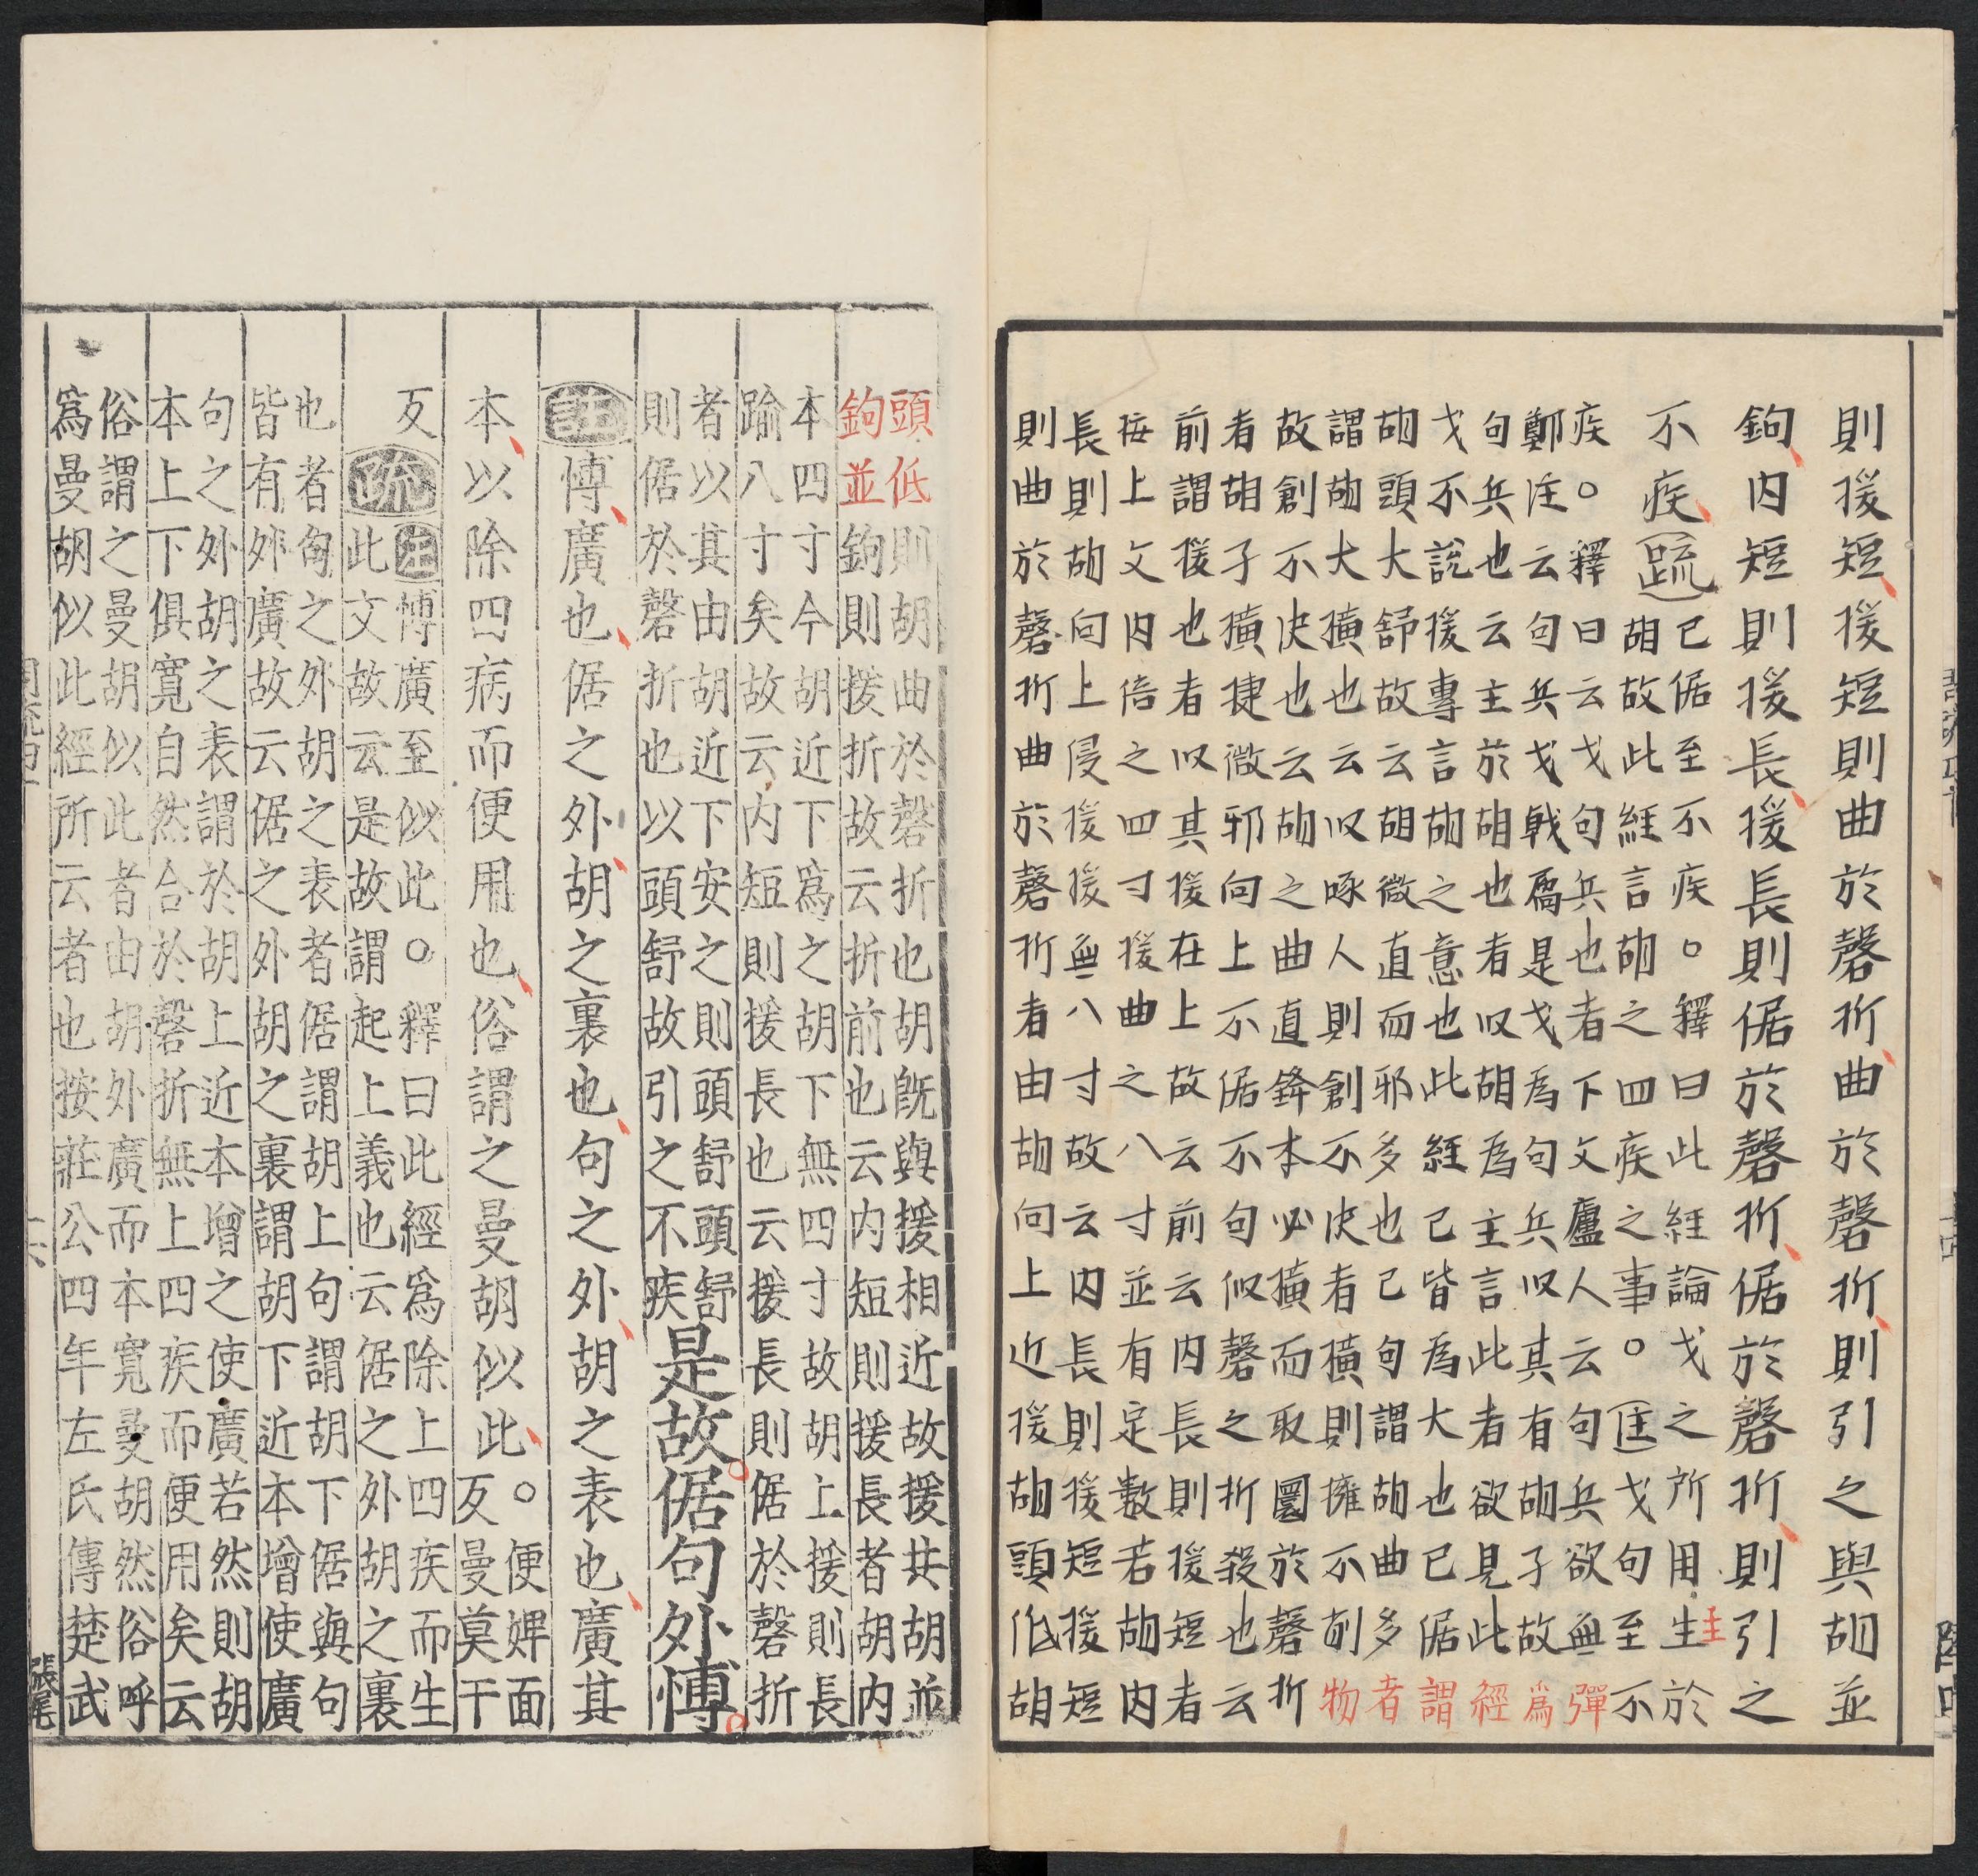 則援短援短則曲於磬折曲於磬折則引之與胡並
鉤内短則援長援長則倨於磬折倨於磬折則引之
不疾疏
已倨至不疾○釋曰此經論戈之所用生於
主
胡故此經言胡之四疾之事○匡戈句至不
疾○釋曰云戈句兵也者下文廬人云句兵欲無彈
鄭注云句兵戈戟屬是戈為句兵以其有胡孑故爲
句兵也云主於胡也者以胡為主言此者欲見此經
戈不說援專言胡之意也此經已皆為大也已倨謂
胡頭大舒故云胡微直而邪多也已句謂胡曲多者
謂胡大橫也云以啄人則創不決者橫則擁不削物
故創不決也云胡之曲直鋒本必橫而取圜於磬折
者胡孑橫捷微邪向上不倨不句似磬之折殺也云
前謂援也者以其援在上故云前云内長則援短者
按上文内倍之四寸援曲之八寸並有定數若胡内
長則胡向上侵援援無八寸故云内長則援短援短
則曲於磬折曲於磬折者由胡向上近援胡頭低胡
頭低則胡曲於磬折也胡既與援相近故援共胡並
鉤並鉤則援折故云折前也云内短則援長者胡内
本四寸今胡近下爲之胡下無四寸故胡上援則長
踰八寸矣故云内短則援長也云援長則倨於磬折
者以其由胡近下安之則頭舒頭舒
則倨於磬折也以頭舒故引之不疾
是故倨句外博
註博廣也倨之外胡之裏也句之外胡之表也廣其
本以除四病而便用也俗謂之曼胡似此○便婢面
反曼莫干
反疏
注博廣至似此○釋曰此經爲除上四疾而生
此文故云是故謂起上義也云倨之外胡之裏
也者句之外胡之表者倨謂胡上句謂胡下倨與句
皆有外廣故云倨之外胡之裏謂胡下近本增使廣
句之外胡之表謂於胡上近本增之使廣若然則胡
本上下俱寬自然合於磬折無上四疾而便用矣云
俗謂之曼胡似此者由胡外廣而本寬曼胡然俗呼
爲曼胡似此經所云者也按莊公四年左氏傳楚武